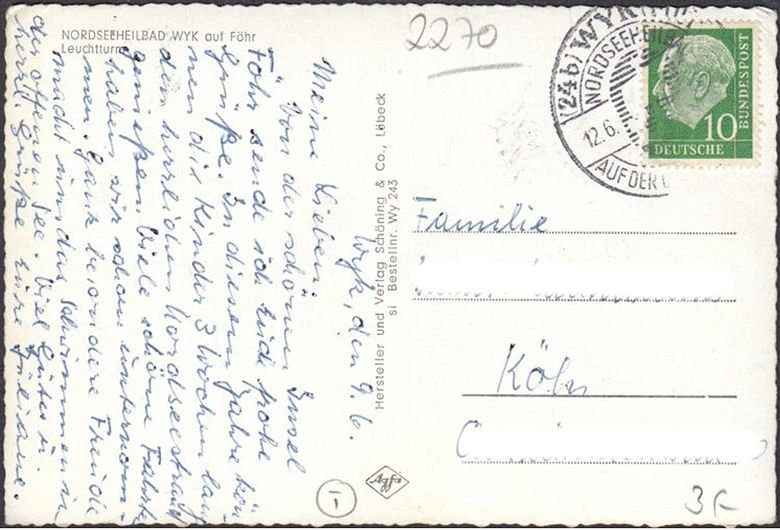 NORDSEEHEILBAD WYK auf Föhr
Leuchtturm
2270
(24b) WYK
NORDSEEHEILBAD
12.6.
AUF DER
10
DEUTSCHE
BUNDESPOST
Wyk, den 9.6.
Meine Lieben,
Von der schönen Insel
Föhr sende ich Euch frohe
Grüße. In diesem Jahre kön
nen die Kinder 3 Wochen lang
den herrlichen Nordseestrand
genießen. Viele schöne Fahrten
haben wir schon unternom-
men. Ganz besondere Freude
macht uns das Schwimmen in
der offenen See. Viel Gutes u.
herzl. Grüße Eure Juliane.
Hersteller und Verlag Schöning & Co., Lübeck
si Bestellnr. Wy 243
Familie
Köln
Agfa
1